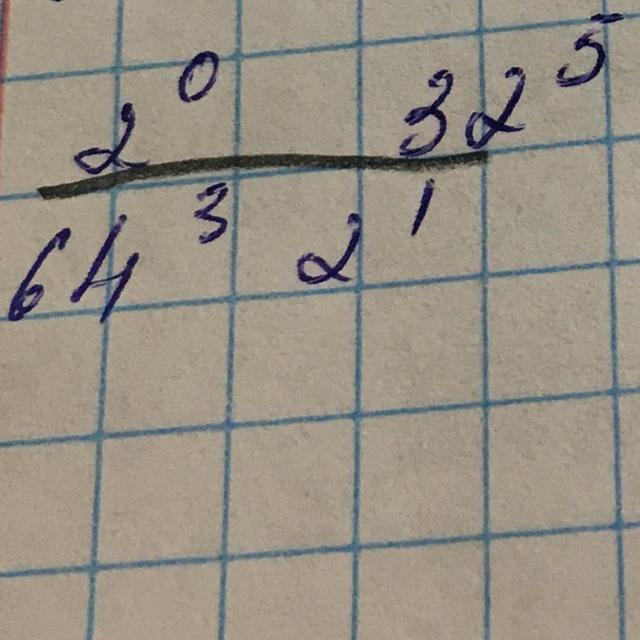 2⁰ 32⁵
64³ 2¹